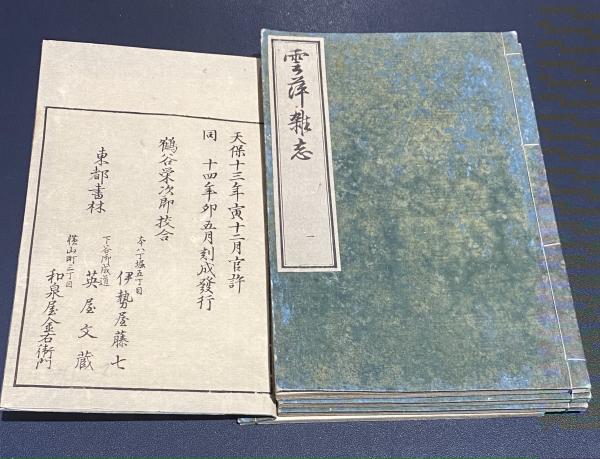 雲萍雜志
一
天保十三年寅十二月官許
同 十四年卯五月刻成發行
鶴谷榮次郎挍合
東都書林
本八丁堀五丁目
伊勢屋藤七
下谷御成道
英屋文蔵
横山町三丁目
和泉屋金右衛門